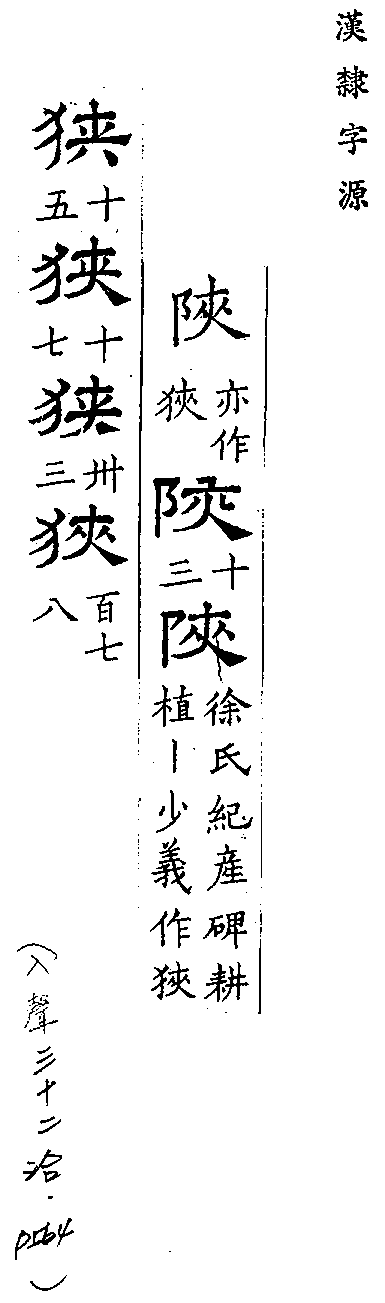 漢隸字源
陝 亦作狹 陝 十三 陝 徐氏紀產碑耕植｜少義作狹
狭 十五 狭 十七 狭 卅三 狹 百七八
(入聲三十二洽．P564)